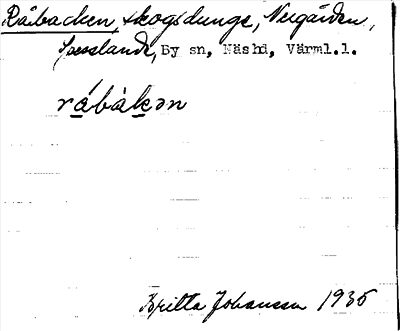 Råbacken, skogsdunge, Nergården,
Loesslande, By sn, Näshd, Värml.l.
råbàkən
Britta Johansson 1935